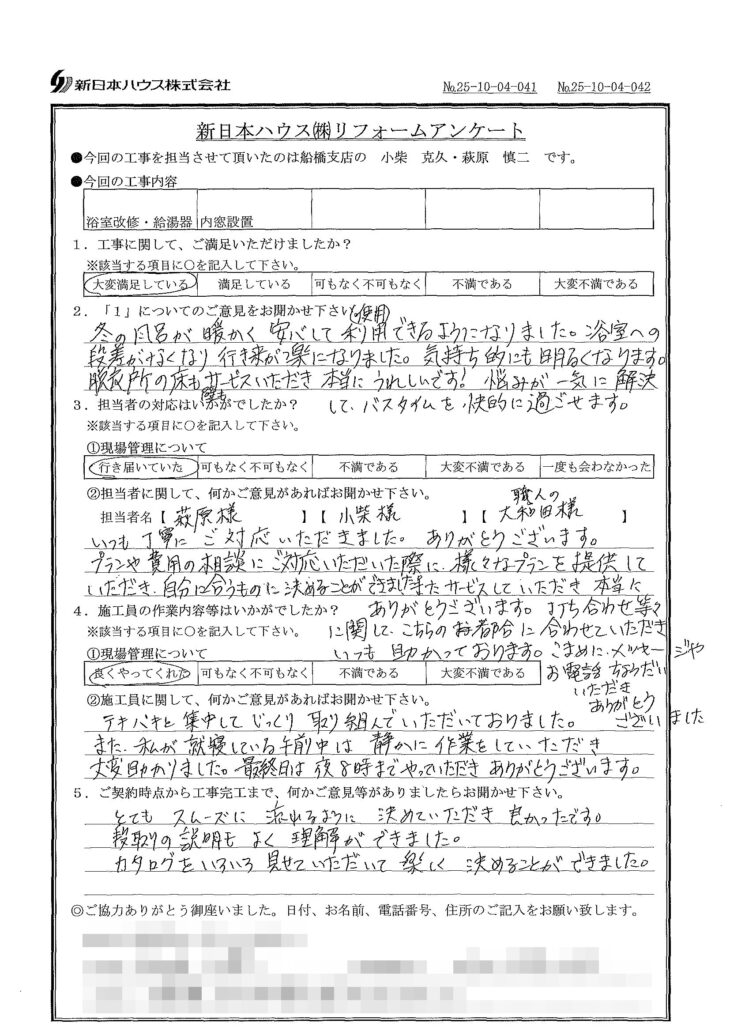 新日本ハウス株式会社
№25-10-04-041 №25-10-04-042
新日本ハウス㈱リフォームアンケート
●今回の工事を担当させて頂いたのは船橋支店の 小柴 克久・萩原 慎二 です。
●今回の工事内容
浴室改修・給湯器 内窓設置
1.工事に関して、ご満足いただけましたか?
※該当する項目に○を記入して下さい。
大変満足している 満足している 可もなく不可もなく 不満である 大変不満である
2.「1」についてのご意見をお聞かせ下さい
(使用)
冬の風呂が暖かく安心して利用できるようになりました。浴室への
段差がなくなり行き来が楽になりました。気持ち的にも明るくなります。
脱衣所の床もサービスいただき本当にうれしいです! 悩みが一気に解決
3.担当者の対応はいかがでしたか?
して、バスタイムを快適に過ごせます。
※該当する項目に○を記入して下さい。
①現場管理について
行き届いていた 可もなく不可もなく 不満である 大変不満である 一度も会わなかった
②担当者に関して、何かご意見があればお聞かせ下さい。
職人の
担当者名【 萩原様 】【 小柴様 】【 大和田様 】
いつも丁寧にご対応いただきました。ありがとうございます。
プランや費用の相談にご対応いただいた際に、様々なプランを提供して
いただき、自分に合うものに決めることができましたまたサービスしていただき本当に
4.施工員の作業内容等はいかがでしたか?
ありがとうございます。打ち合わせ等々
※該当する項目に○を記入して下さい。
に関して、こちらのお都合に合わせていただき
①現場管理について
いつも助かっております。こまめに、メッセージや
良くやってくれた 可もなく不可もなく 不満である 大変不満である
お電話ちょうだい
いただき
ありがとう
ございました
②施工員に関して、何かご意見があればお聞かせ下さい。
テキパキと集中してじっくり取り組んでいただいておりました。
また、私が就寝している午前中は静かに作業をしていただき
大変助かりました。最終日は夜8時までやっていただきありがとうございます。
5.ご契約時点から工事完工まで、何かご意見等がありましたらお聞かせ下さい。
とてもスムーズに流れるように決めていただき良かったです。
段取りの説明もよく理解ができました。
カタログをいろいろ見せていただいて楽しく決めることができました。
◎ご協力ありがとう御座いました。日付、お名前、電話番号、住所のご記入をお願い致します。